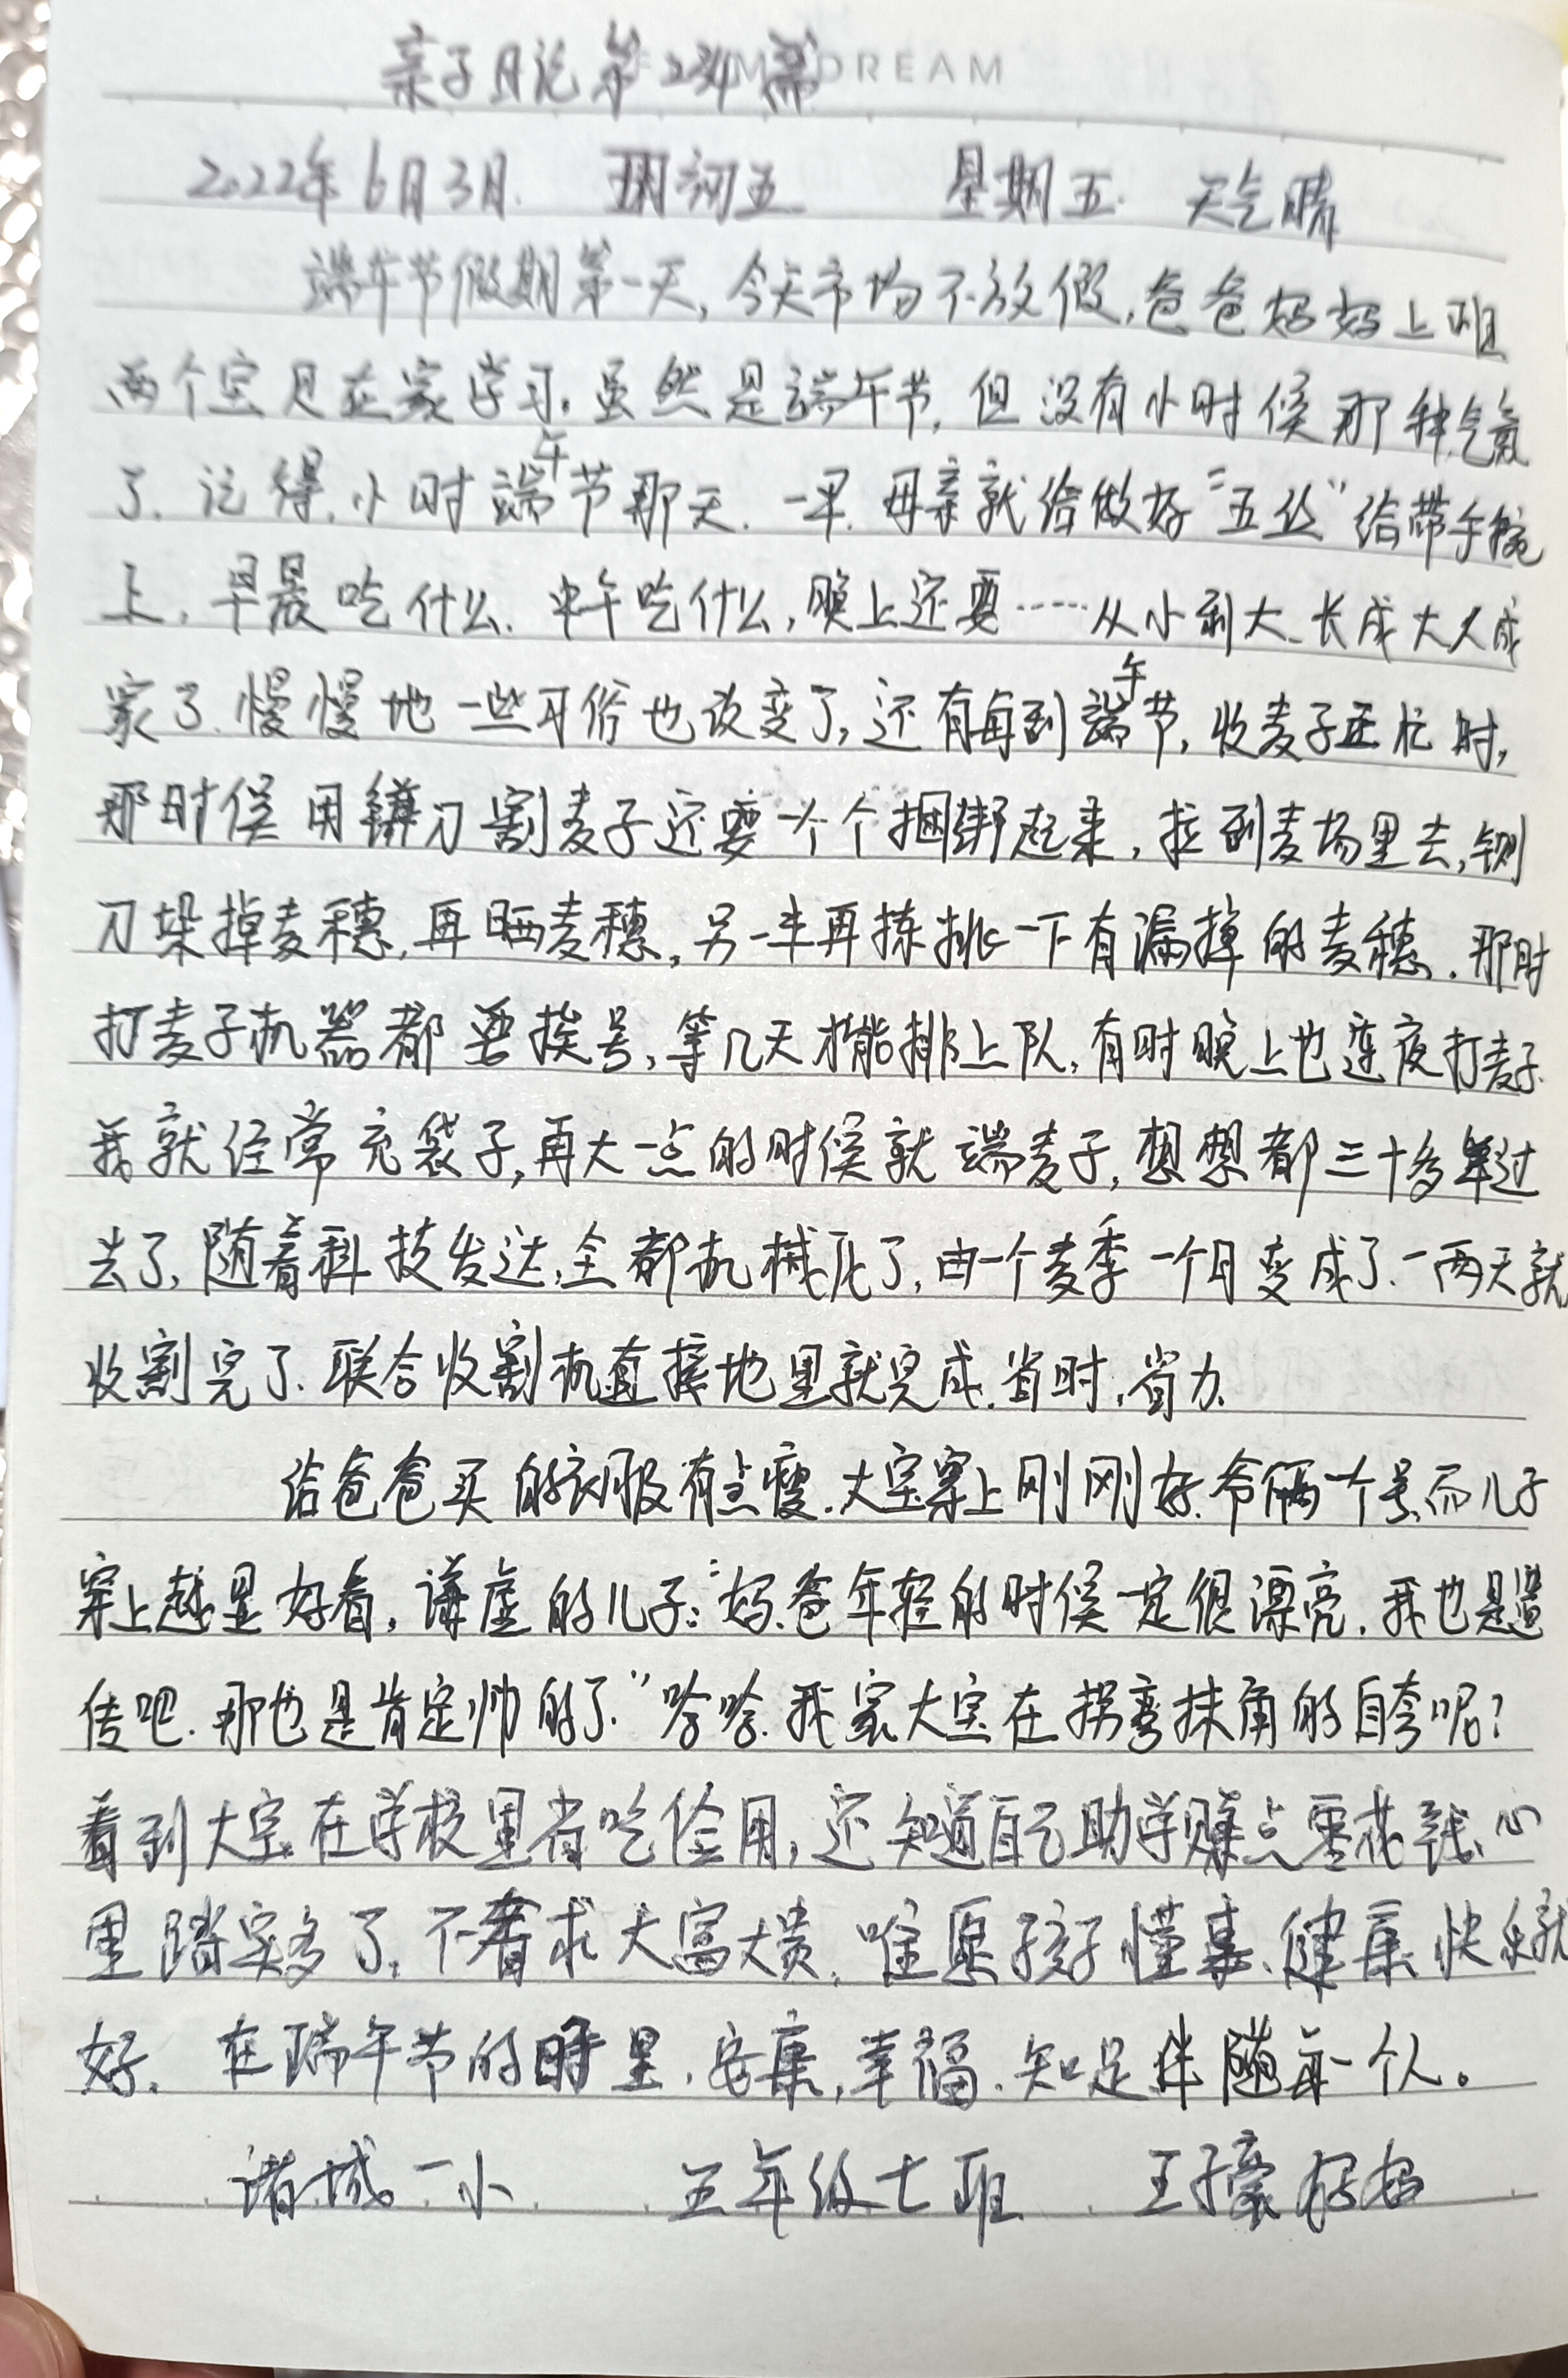 亲子日记第篇 DREAM
2022年6月3日 五月初五 星期五 天气晴
端午节假期第一天,今天市场不放假,爸爸妈妈上班
两个宝贝在家学习。虽然是端午节,但没有小时候那种气氛
了.记得,小时端午节那天.一早.母亲就给做好“五丝”给带手腕
上,早晨吃什么.中午吃什么,晚上还要……从小到大、长成大人成
家了.慢慢地一些习俗也改变了,还有每到端午节,收麦子正忙时,
那时候用镰刀割麦子还要一个个捆绑起来,拉到麦场里去,铡
刀垛掉麦穗,再晒麦穗,另一半再拣挑一下有漏掉的麦穗.那时
打麦子机器都要挨号,等几天才能排上队,有时晚上也连夜打麦子.
我就经常充袋子,再大一点的时候就端麦子,想想都三十多年过
去了,随着科技发达,全都机械化了,由一个麦季一个月变成了一两天就
收割完了.联合收割机直接地里就完成.省时,省力.
给爸爸买的衣服有点瘦.大宝穿上刚刚好.爷俩一个号,而儿子
穿上越显好看,谦虚的儿子:“妈.爸年轻的时候一定很漂亮.我也是遗
传吧.那也是肯定帅的了.”哈哈.我家大宝在拐弯抹角的自夸呢?
看到大宝在学校里省吃俭用,还知道自己助学赚点零花钱、心
里踏实多了,不奢求大富大贵,唯愿孩子懂事、健康、快乐就
好.在端午节的时里,安康,幸福.知足伴随每一个人。
诸城一小 五年级七班 王子豪妈妈